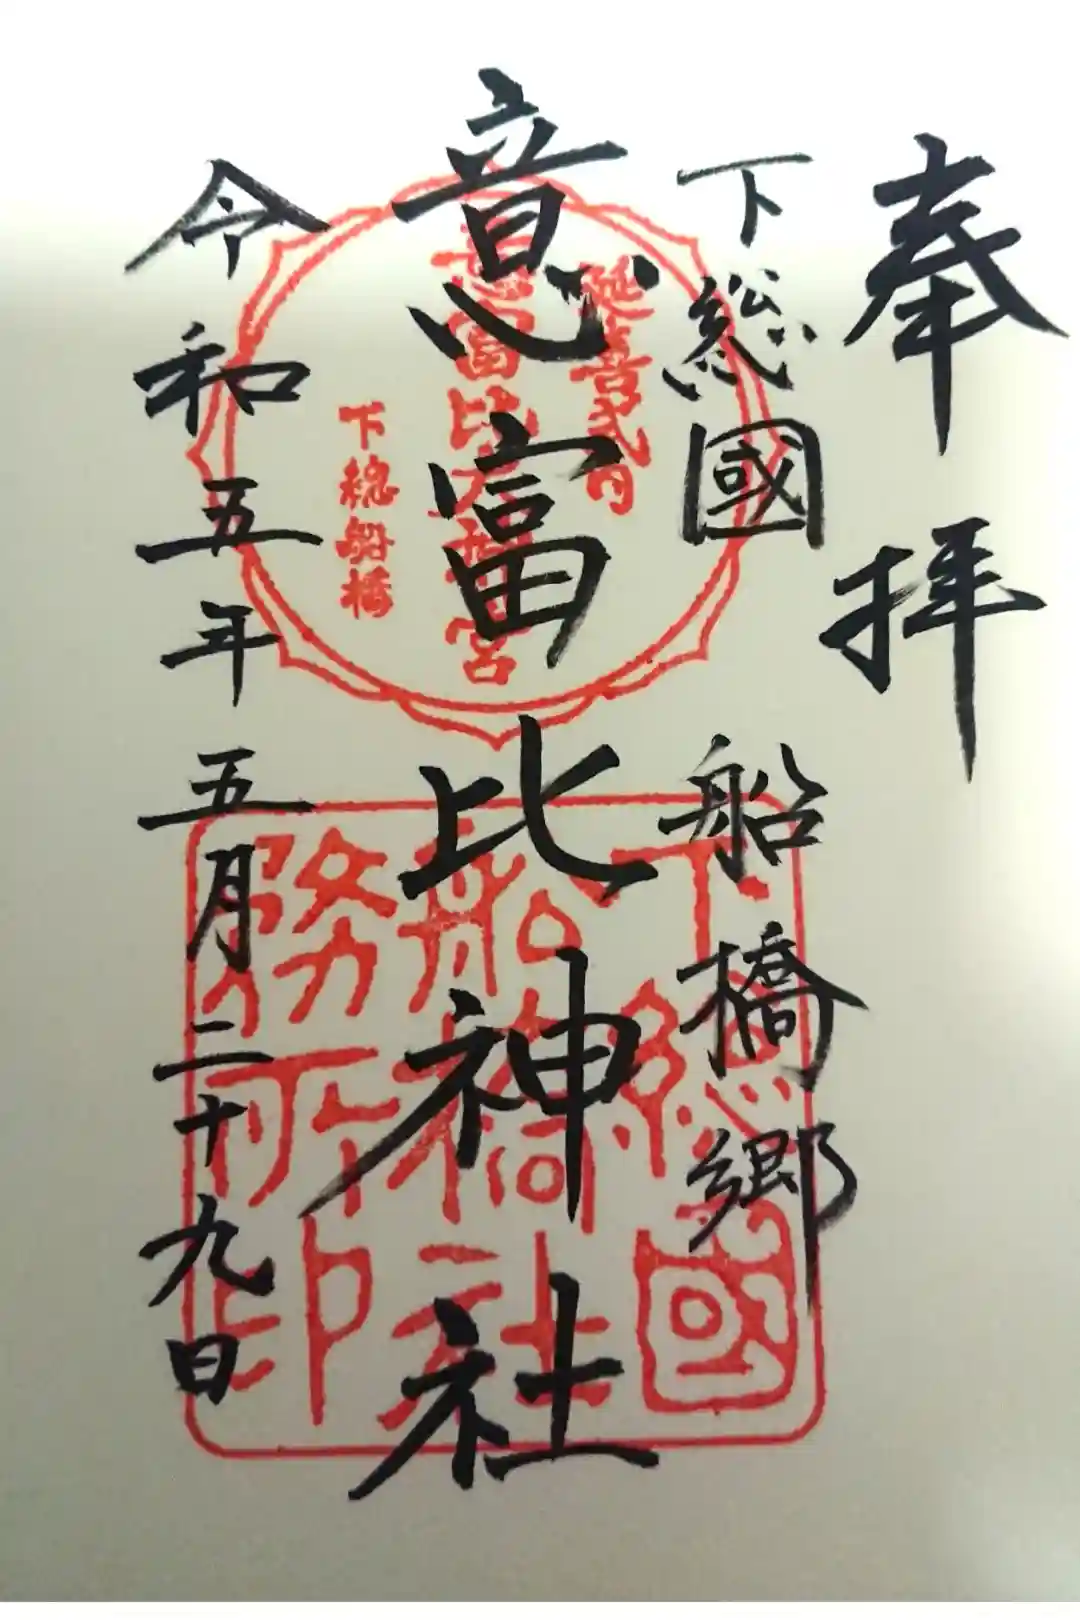 奉拝
下総國 船橋郷
意富比神社
令和五年五月二十九日
延喜式内
意富比大神宮
下総船橋
下総國
船橋社
務所印